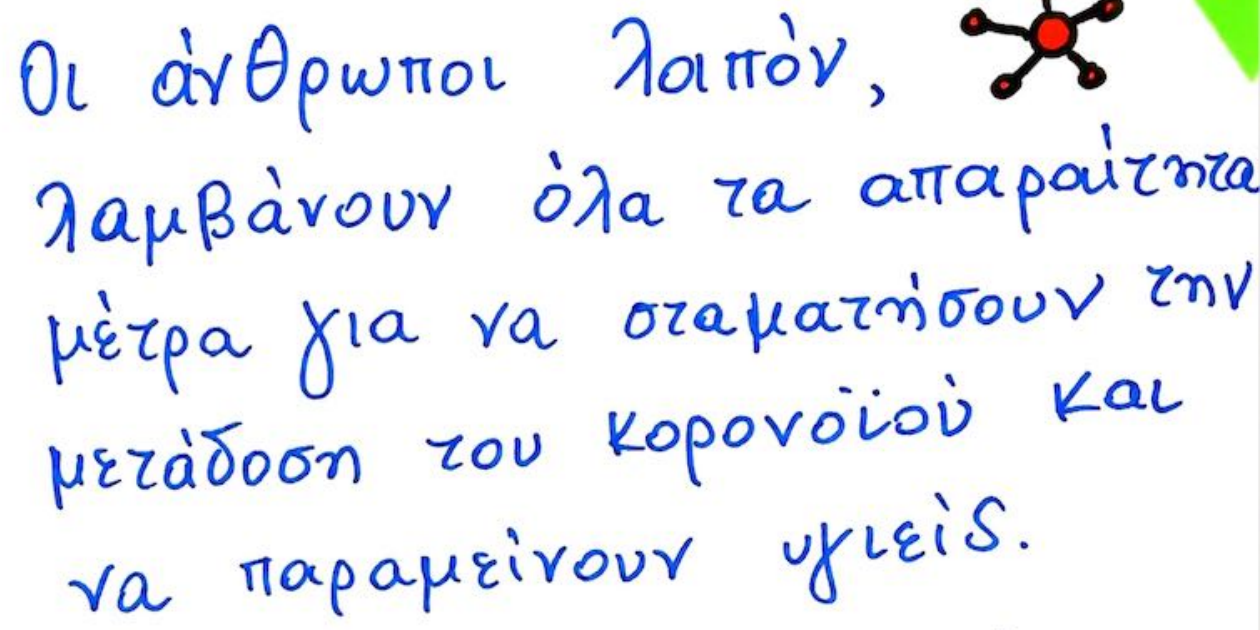 Οι άνθρωποι λοιπόν,
λαμβάνουν όλα τα απαραίτητα
μέτρα για να σταματήσουν την
μετάδοση του κορονοϊού και
να παραμείνουν υγιείς.